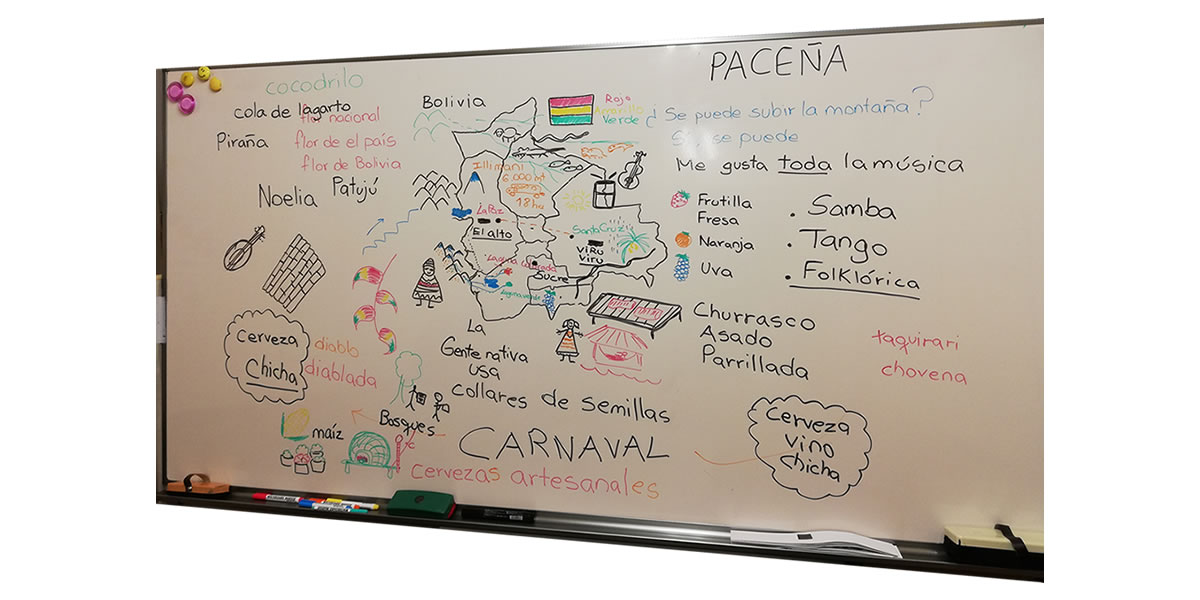 cocodrilo
cola de lagarto
flor nacional
Piraña
flor de el país
flor de Bolivia
Patujú
Noelia
Bolivia
Rojo
Amarillo
Verde
PACEÑA
¿Se puede subir la montaña?
Sí, se puede
Me gusta toda la música
Frutilla
Fresa
Naranja
Uva
. Samba
. Tango
. Folklórica
Illimani
6.000 mt
18 hs
La Paz
El alto
Santa Cruz
VIRU
VIRU
Laguna Colorada
Sucre
Laguna verde
Cerveza
Chicha
diablo
diablada
La
Gente nativa
usa
collares de semillas
Churrasco
Asado
Parrillada
taquirari
chovena
Bosques
maíz
°C
CARNAVAL
Cervezas artesanales
Cerveza
vino
chicha